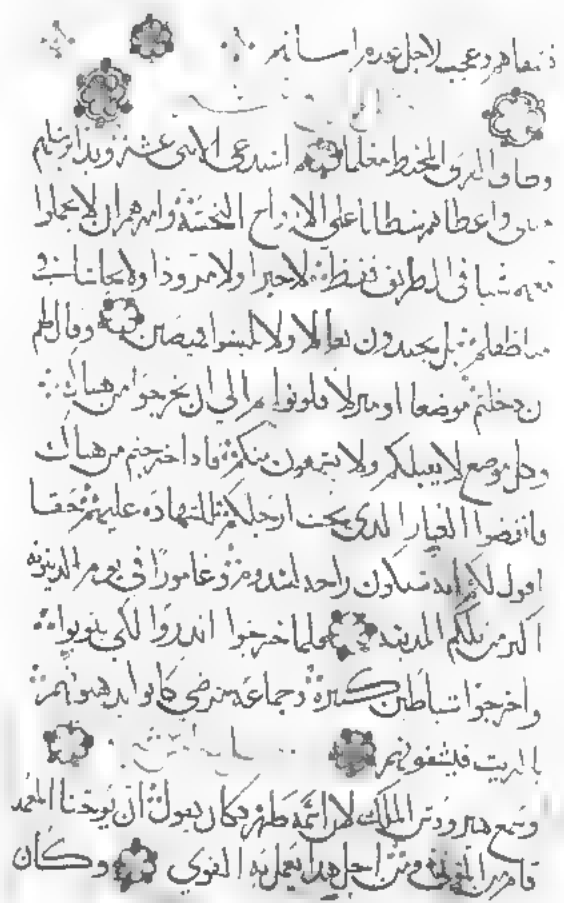 فشفاهم وعجب لاجل عدم ايمانهم
وطاف القرى المحيطة معلما استدعى الاثنى عشر وبدا يرسلهم
واعطاهم سلطانا على الارواح النجسة وامرهم ان لا يحملوا
شيا فى الطريق لا خبزا ولا مزودا ولا نحاسا فى
مناطقهم بل يحتذون نعالا ولا يلبسوا قميصين وقال لهم
ان دخلتم موضعا او منزلا فكونوا الى ان يخرجوا من هناك
وكل موضع لا يقبلكم ولا يسمعون منكم فاذا خرجتم من هناك
فانفضوا الغبار الذى تحت ارجلكم للشهادة عليهم حقا
اقول لكم انه سيكون راحة لسدوم وغامورا فى يوم الدينونة
اكثر من تلكم المدينة فلما خرجوا انذروا لكى يتوبوا
واخرجوا شياطين كثيرة وجماعة مرضى كانوا يدهنونهم
بالزيت فيشفونهم
وسمع هيرودس الملك لان اسمه ظهر فكان يقول ان يوحنا المعمد
قام من ومن اجل هذا يعمل به القوى وكان